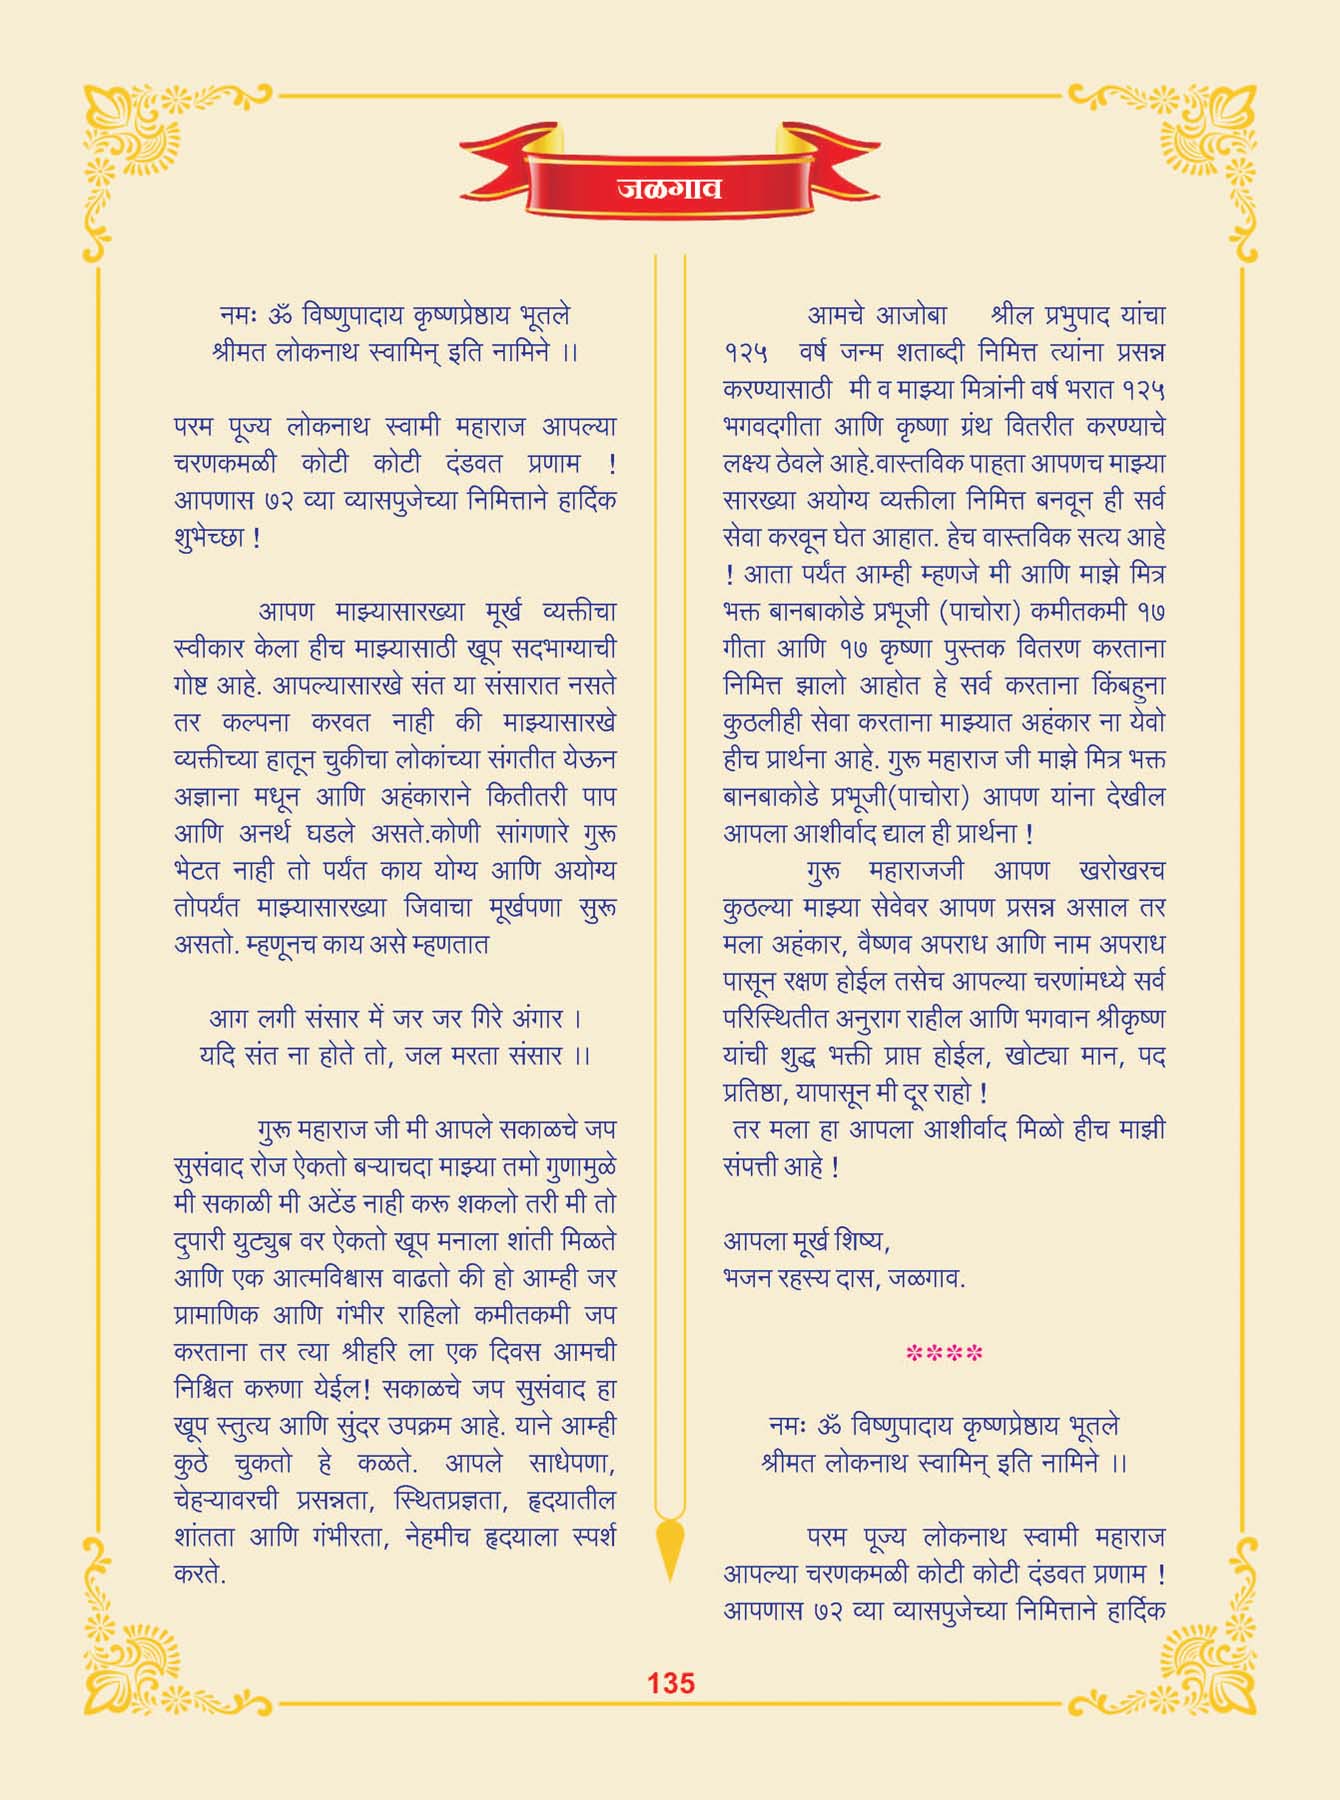 जळगाव
नमः ॐ विष्णुपादाय कृष्णप्रेष्ठाय भूतले
श्रीमत लोकनाथ स्वामिन् इति नामिने ।।
परम पूज्य लोकनाथ स्वामी महाराज आपल्या
चरणकमळी कोटी कोटी दंडवत प्रणाम !
आपणास ७२ व्या व्यासपुजेच्या निमित्ताने हार्दिक
शुभेच्छा !
आपण माझ्यासारख्या मूर्ख व्यक्तीचा
स्वीकार केला हीच माझ्यासाठी खूप सदभाग्याची
गोष्ट आहे. आपल्यासारखे संत या संसारात नसते
तर कल्पना करवत नाही की माझ्यासारखे
व्यक्तीच्या हातून चुकीचा लोकांच्या संगतीत येऊन
अज्ञाना मधून आणि अहंकाराने कितीतरी पाप
आणि अनर्थ घडले असते.कोणी सांगणारे गुरू
भेटत नाही तो पर्यंत काय योग्य आणि अयोग्य
तोपर्यंत माझ्यासारख्या जिवाचा मूर्खपणा सुरू
असतो. म्हणूनच काय असे म्हणतात
आग लगी संसार में जर जर गिरे अंगार ।
यदि संत ना होते तो, जल मरता संसार ।।
गुरू महाराज जी मी आपले सकाळचे जप
सुसंवाद रोज ऐकतो बऱ्याचदा माझ्या तमो गुणामुळे
मी सकाळी मी अटेंड नाही करू शकलो तरी मी तो
दुपारी युट्युब वर ऐकतो खूप मनाला शांती मिळते
आणि एक आत्मविश्वास वाढतो की हो आम्ही जर
प्रामाणिक आणि गंभीर राहिलो कमीतकमी जप
करताना तर त्या श्रीहरि ला एक दिवस आमची
निश्चित करुणा येईल! सकाळचे जप सुसंवाद हा
खूप स्तुत्य आणि सुंदर उपक्रम आहे. याने आम्ही
कुठे चुकतो हे कळते. आपले साधेपणा,
चेहऱ्यावरची प्रसन्नता, स्थितप्रज्ञता, हृदयातील
शांतता आणि गंभीरता, नेहमीच हृदयाला स्पर्श
करते.
आमचे आजोबा श्रील प्रभुपाद यांचा
१२५ वर्ष जन्म शताब्दी निमित्त त्यांना प्रसन्न
करण्यासाठी मी व माझ्या मित्रांनी वर्ष भरात १२५
भगवदगीता आणि कृष्णा ग्रंथ वितरीत करण्याचे
लक्ष्य ठेवले आहे.वास्तविक पाहता आपणच माझ्या
सारख्या अयोग्य व्यक्तीला निमित्त बनवून ही सर्व
सेवा करवून घेत आहात. हेच वास्तविक सत्य आहे
! आता पर्यंत आम्ही म्हणजे मी आणि माझे मित्र
भक्त बानबाकोडे प्रभूजी (पाचोरा) कमीतकमी १७
गीता आणि १७ कृष्णा पुस्तक वितरण करताना
निमित्त झालो आहोत हे सर्व करताना किंबहुना
कुठलीही सेवा करताना माझ्यात अहंकार ना येवो
हीच प्रार्थना आहे. गुरू महाराज जी माझे मित्र भक्त
बानबाकोडे प्रभूजी(पाचोरा) आपण यांना देखील
आपला आशीर्वाद द्याल ही प्रार्थना !
गुरू महाराजजी आपण खरोखरच
कुठल्या माझ्या सेवेवर आपण प्रसन्न असाल तर
मला अहंकार, वैष्णव अपराध आणि नाम अपराध
पासून रक्षण होईल तसेच आपल्या चरणांमध्ये सर्व
परिस्थितीत अनुराग राहील आणि भगवान श्रीकृष्ण
यांची शुद्ध भक्ती प्राप्त होईल, खोट्या मान, पद
प्रतिष्ठा, यापासून मी दूर राहो !
तर मला हा आपला आशीर्वाद मिळो हीच माझी
संपत्ती आहे !
आपला मूर्ख शिष्य,
भजन रहस्य दास, जळगाव.
****
नमः ॐ विष्णुपादाय कृष्णप्रेष्ठाय भूतले
श्रीमत लोकनाथ स्वामिन् इति नामिने ।।
परम पूज्य लोकनाथ स्वामी महाराज
आपल्या चरणकमळी कोटी कोटी दंडवत प्रणाम !
आपणास ७२ व्या व्यासपुजेच्या निमित्ताने हार्दिक
135